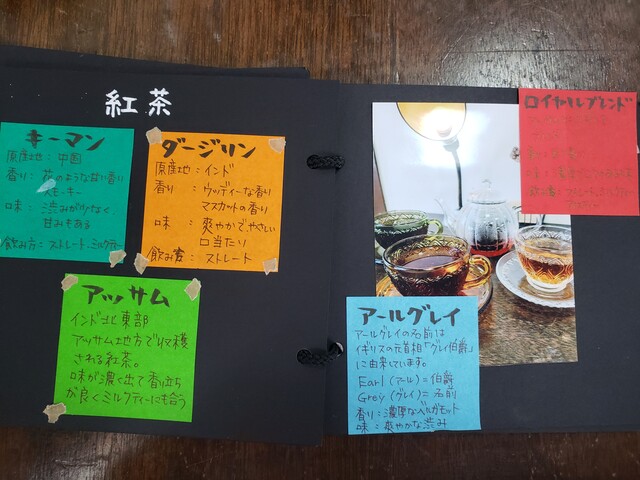 紅茶
キーマン
原産地：中国
香り：花のような甘い香り
スモーキー
味：渋みが少なく
甘みもある
飲み方：ストレート、ミルクティ
ダージリン
原産地：インド
香り：ウッディーな香り
マスカットの香り
味：爽やかでやさしい
口当たり
飲み方：ストレート
アッサム
インド北東部
アッサム地方で
される紅茶。
味が濃く出て香り立ち
が良くミルクティーにも合う
ロイヤルブレンド
アールグレイ
アールグレイの名前は
イギリスの元首相「グレイ伯爵」
に由来しています。
Earl（アール）＝伯爵
Grey（グレイ）＝名前
香り：濃厚なベルガモット
味：爽やかな渋み